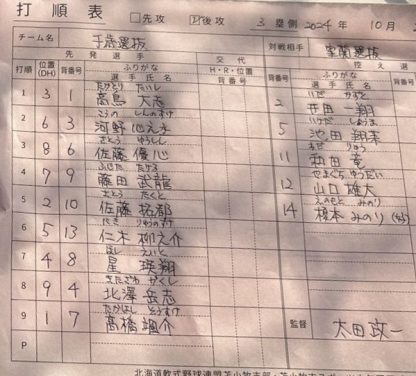 打順表 □先攻 ☑後攻 3塁側 2024年 10月
チーム名 千歳選抜 対戦相手 室蘭選抜
先発選手 交代 控え選
打順 位置(DH) 背番号 ふりがな 選手氏名 H・R・位置 背番号 背番号 ふりがな 選手氏名
1 3 1 高島 大志
2 6 3 こうの しんのすけ 河野 心之介
3 8 6 さとう ゆうしん 佐藤 優心
4 7 9 ふじた たける 藤田 武龍
5 2 10 さとう たくと 佐藤 拓都
6 5 13 にき りゅうのすけ 仁木 柳之介
7 4 8 ほし えいと 星 瑛翔
8 9 4 きたざわ がくし 北澤 岳志
9 1 7 たかはし そうすけ 高橋 颯介
P
2 一翔
5 いけだ しょうま 池田 翔末
11 りゅう 和田 竜
12 やまぐち ゆうだい 山口 雄大
14 えのもと みのり 榎本 みのり
監督 太田 政一
北海道軟式野球連盟苫小牧支部